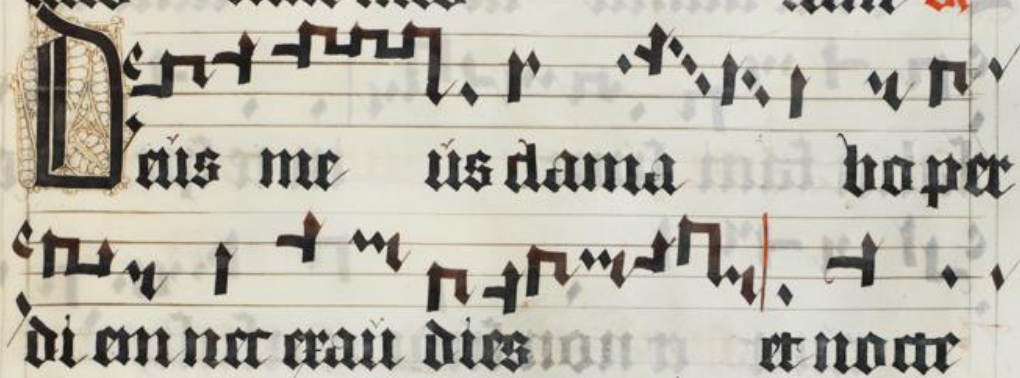 Deus me us clama bo per
di em nec exau dies et nocte